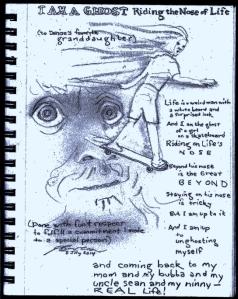 I AM A GHOST Riding the Nose of Life
(to Denise's favorite
granddaughter)
Life is a weird man with
a white beard and
a surprised look
And I am the ghost
of a girl
on a skateboard
Riding on Life's
NOSE
Beyond his nose
is the Great
BEYOND
Staying on his nose
is tricky
But I am up to it
And I am up
to
unghosting
myself
(Done with fun & respect
to fulfill a commitment I made
to a special person)
and coming back to my
mom and my bubba and my
uncle sean and my ninny —
REAL Life!